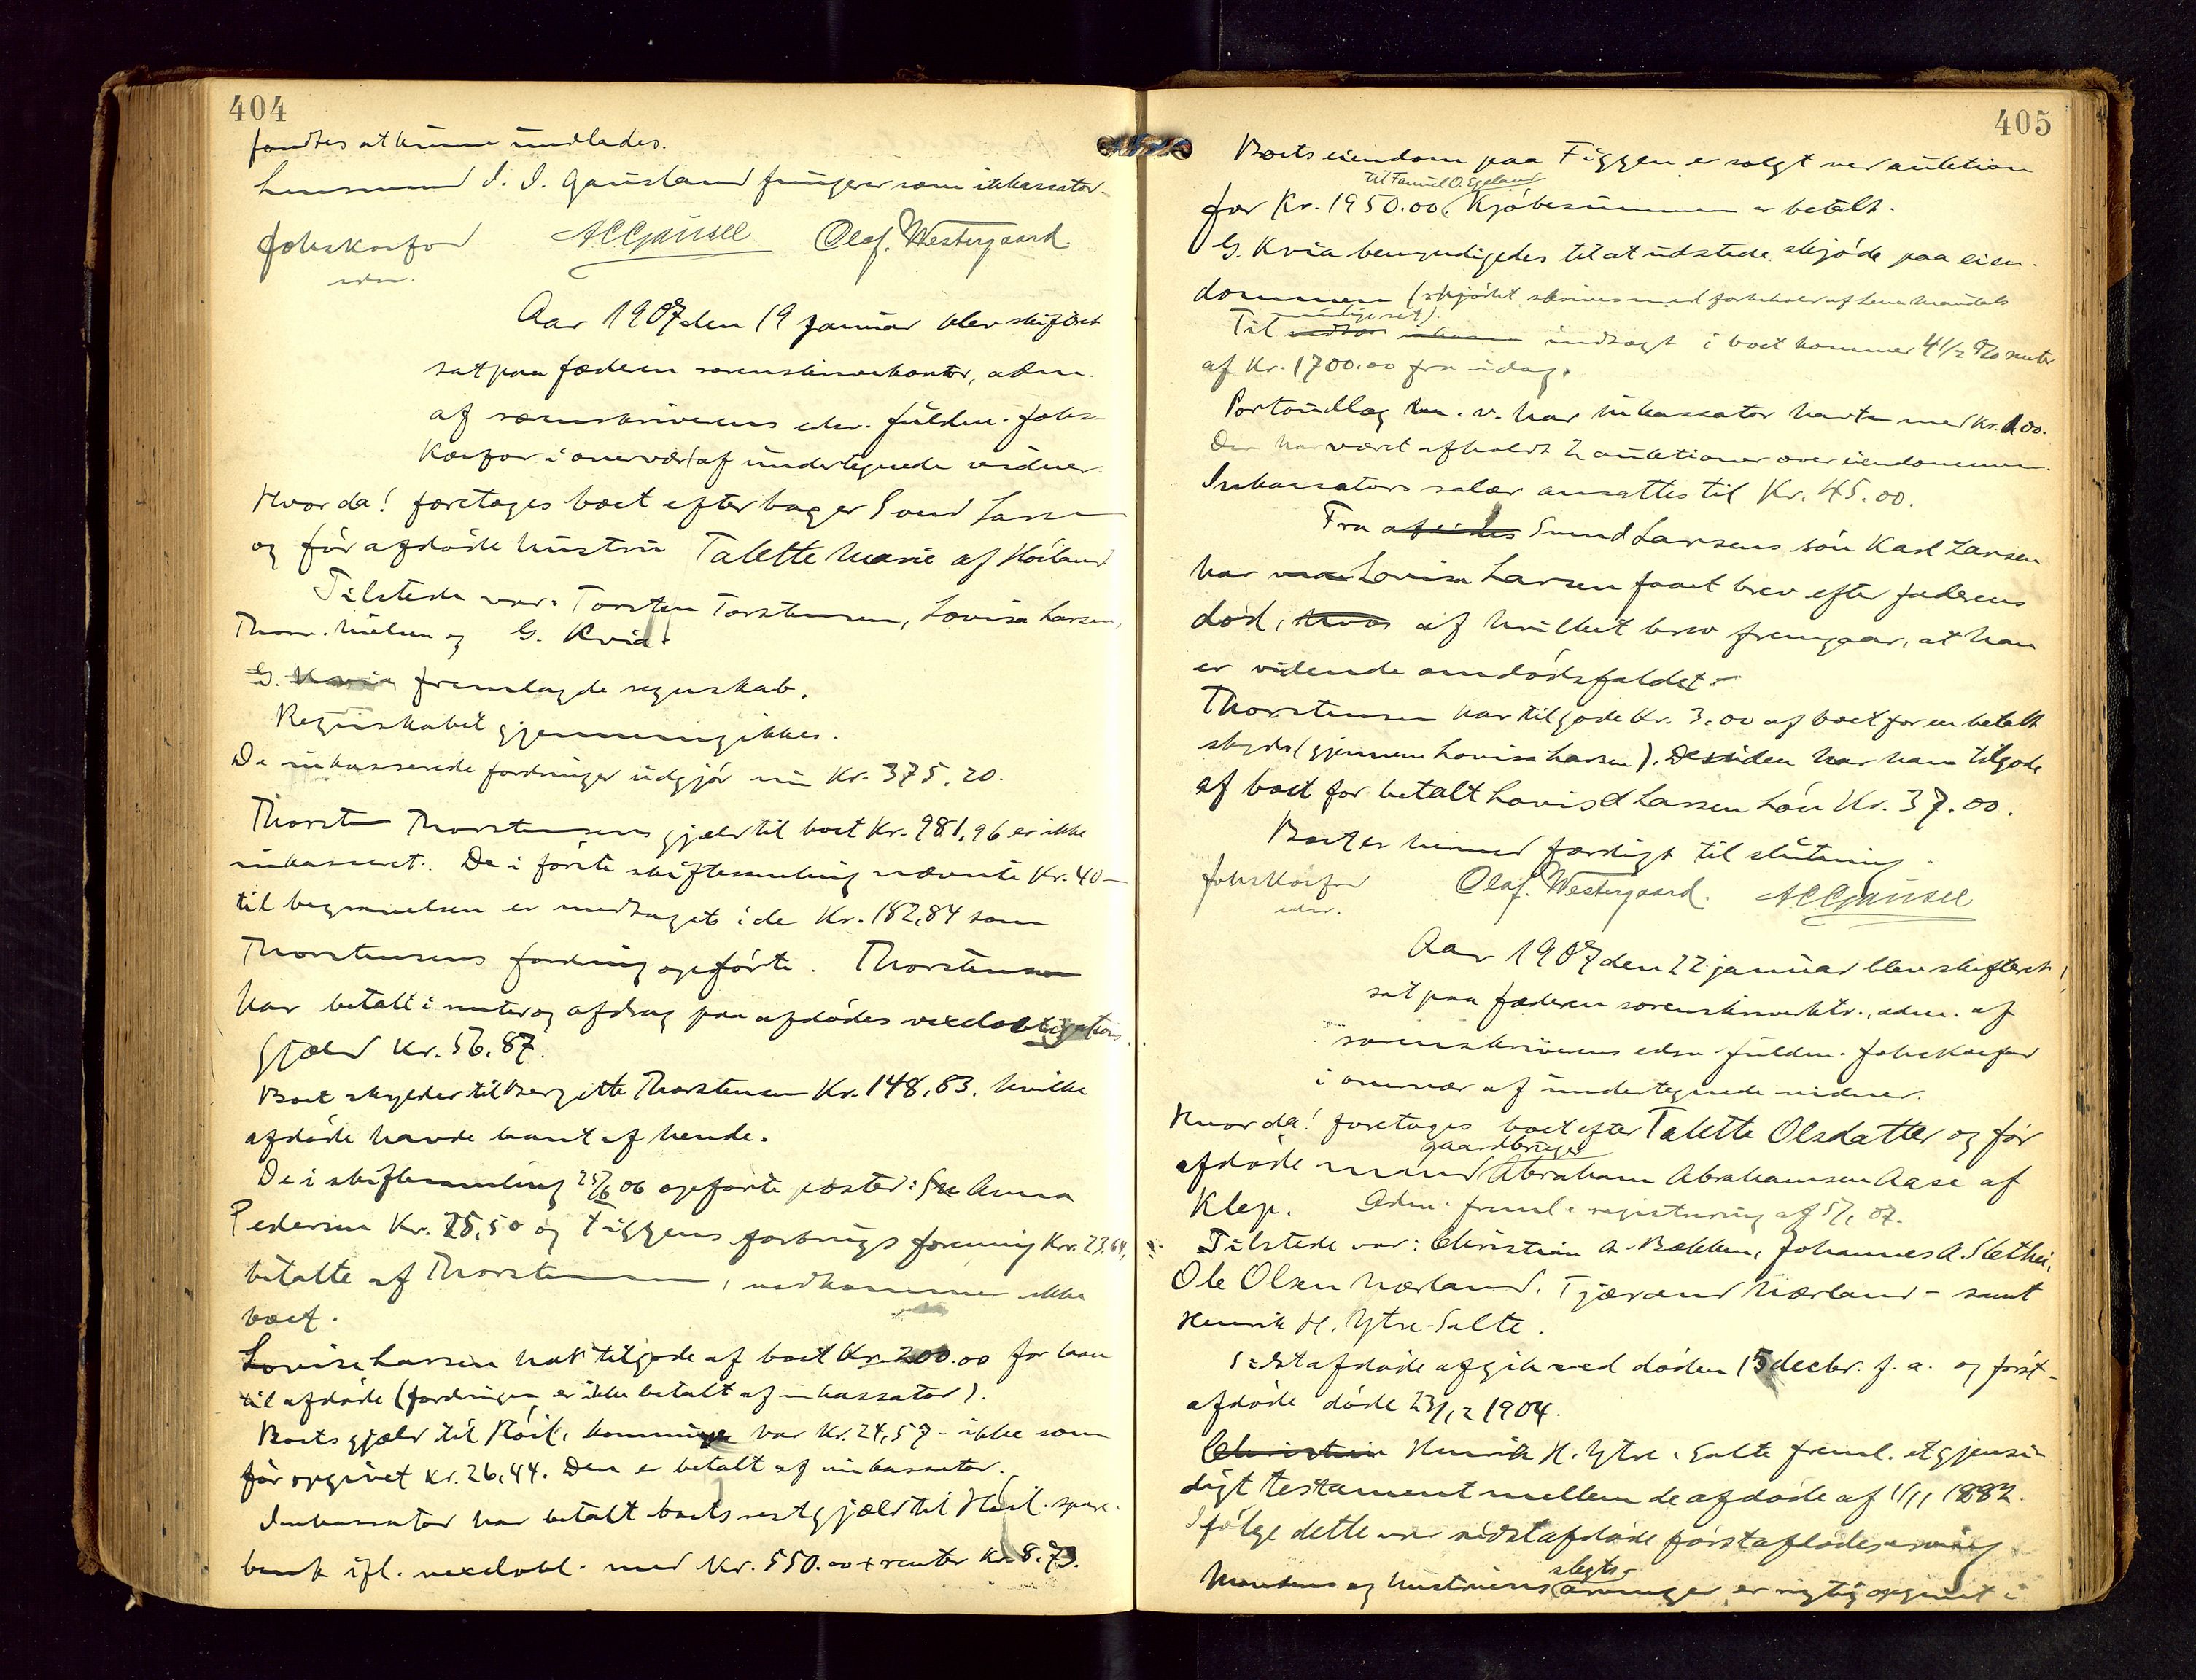 404
fandtes at kunne undlades.
Lensmand I. I. Gausland fungerer som inkassator.
Johs Korfor A C Gausel Olaf. Westergaard
edsv.
Aar 1907 den 19 januar blev skifteret
sat paa Jæderen sorenskriverkontor, adm.
af sorenskriverens edsv. fuldm. Johs
Korfor i overvær af undertegnede vidner.
Hvorda! foretoges boet efter bager Svend Larsen
og før afdøde hustru Talette Marie af Høiland
Tilstede var: Torsten Torstensen, Lovisa Larsen,
Thom. Nielsen og G. Kvia.
G. Kvia fremlagde regnskab.
Regnskabet gjennemgikkes.
De inkasserede fordringer udgjør nu Kr. 375.20.
Thorsten Thorstensens gjæld til boet Kr. 981,96 er ikke
inkasseret. De i første skiftesamling nævnte Kr. 40–
til begravelsen er medtaget i de Kr. 182,84 som
Thorstensens fordring opførte. Thorstensen
har betalt i renter og afdrag paa afdødes vexelobligations
gjæld Kr. 56,87.
Boet skylder til Bergitte Thorstensen Kr. 148,83, hvilke
afdøde havde laant af hende.
De i skiftesamling 25/6 06 opførte poster: Anna
Pedersen Kr. 25,50 og Figgens forbrugs forening Kr. 23.64,
betalte af Thorstensen, vedkommer ikke
boet.
Lovise Larsen har tilgode af boet Kr. 200.00 for laan
til afdøde (fordringen er ikke betalt af inkassator).
Boets gjæld til Høil. kommune var Kr. 24,57 – ikke som
før opgivet Kr. 26,44. Den er betalt af inkassator.
Inkassator har betalt boets restgjæld til Høil. spare-
bank ifl. vexelobl. med Kr. 550.00 + renter Kr. 8.73.
405
Boets eiendom paa Figgen er solgt ved auktion
til Samuel O. Egeland
for Kr. 1950.00. Kjøbesummen er betalt.
G. Kvia bemyndigedes til at udstede skjøde paa eien-
dommen (skjødet skrives med forbehold af
Til indtægt i boet kommer 4 1/2 % renter
af Kr. 1700.00 fra idag.
Portoudlæg m. v. har inkassator havt med Kr. 1.00.
Der har været afholdt 2 auktioner over eiendommen.
Inkassators salær ansattes til Kr. 45.00.
Fra Svend Larsens søn Karl Larsen
har Lovise Larsen faaet brev efter faderens
død, af hvilket brev fremgaar, at han
er vidende om dødsfaldet.
Thorstensen har tilgode Kr. 3.00 af boet for en betalt
skyds (gjennem Lovisa Larsen). Desuden har han tilgode
af boet for betalt Lovise Larsen løn Kr. 37.00.
Boet er hermed færdigt til slutning.
Johs Korfor Olaf. Westergaard. A C Gausel
edsv.
Aar 1907 den 22 januar blev skifteret
sat paa Jæderen sorenskriverktr., adm. af
sorenskriverens edsv. fuldm. Johs Korfor
i overvær af undertegnede vidner.
Hvorda! foretoges boet efter Talette Olsdatter og før
gaardbruger
afdøde mand Abraham Abrahamsen Aase af
Klep. Adm. freml. registrering af 5/1 07.
Tilstede var: Christian A. Bækken, Johannes A. Slethei,
Ole Olsen Nærland, Tjærand Nærland – samt
Henrik H. Ytre-Salte.
Sidstafdøde afgik ved døden 15 decbr. f. a. og først-
afdøde døde 23/12 1904.
Christian Henrik H. Ytre-Salte freml. et gjensi-
digt testament mellem de afdøde af 1/11 1882.
Ifølge dette var sidstafdøde førstafdødes arving
slegts-
Mandens og hustruens arvinger er rigtig opgivet i